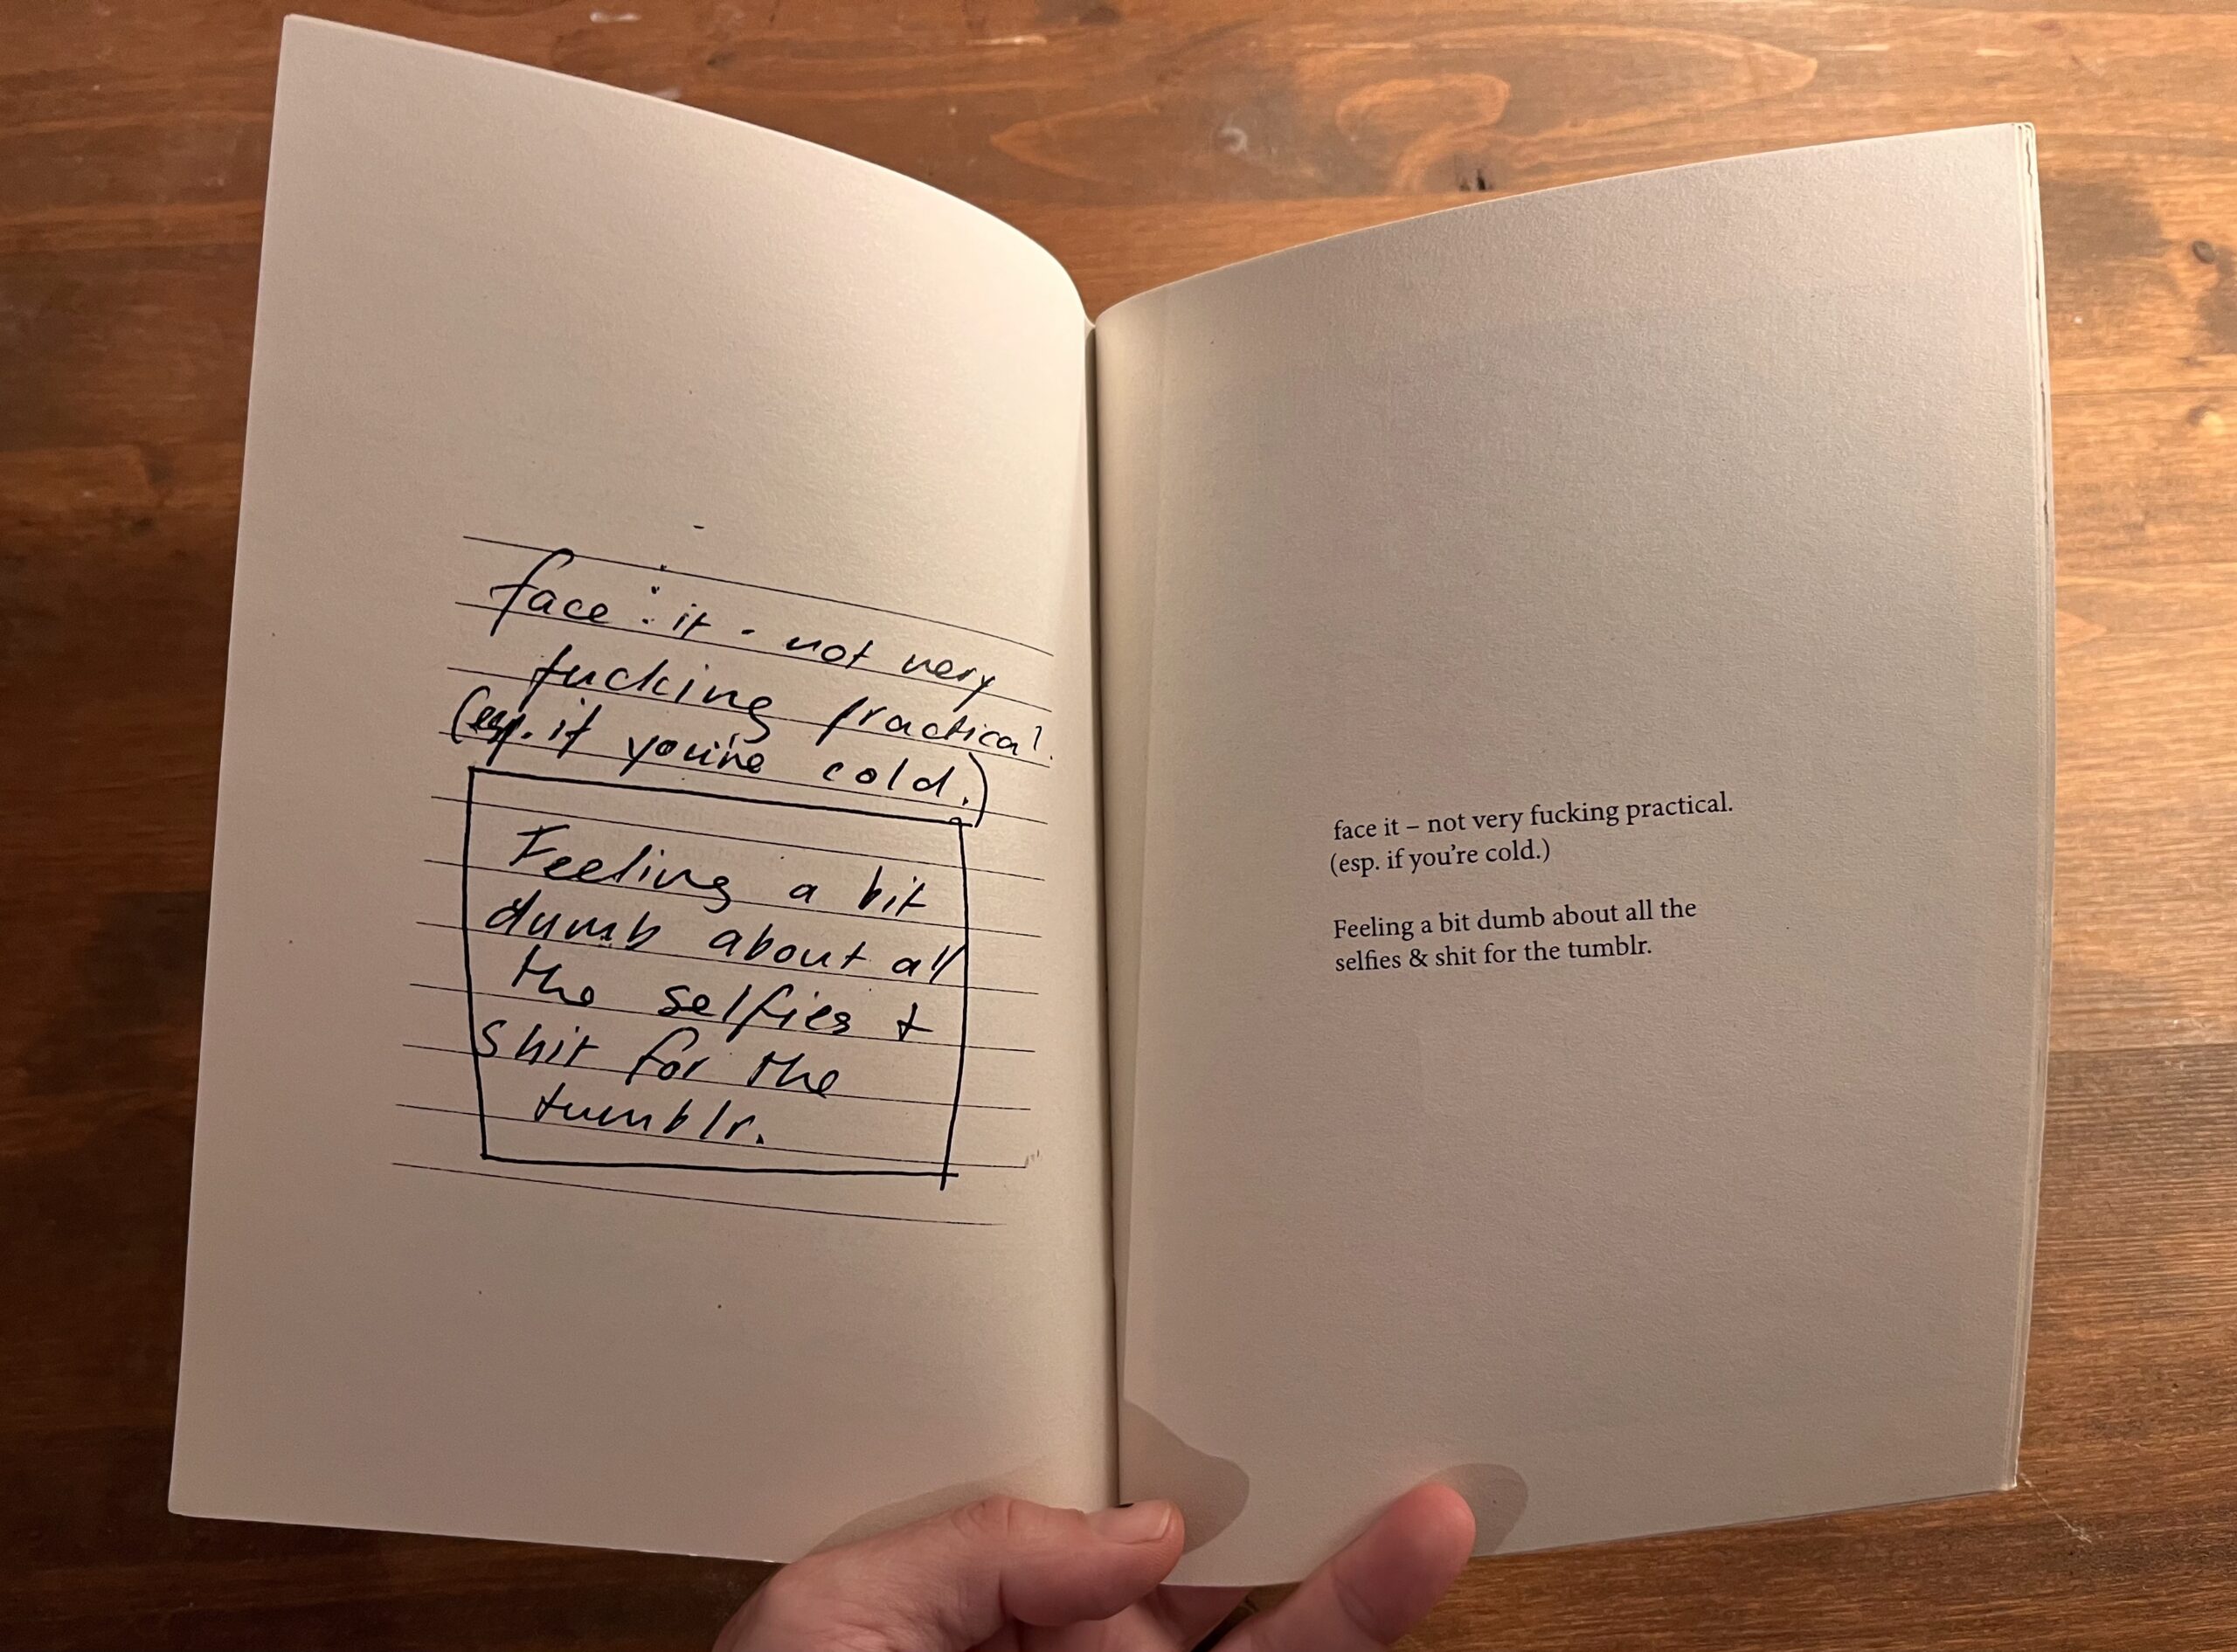 face : it - not very
fucking practical.
(esp. if you're cold.)
Feeling a bit
dumb about all
the selfies +
shit for the
tumblr.
face it – not very fucking practical.
(esp. if you're cold.)
Feeling a bit dumb about all the
selfies & shit for the tumblr.